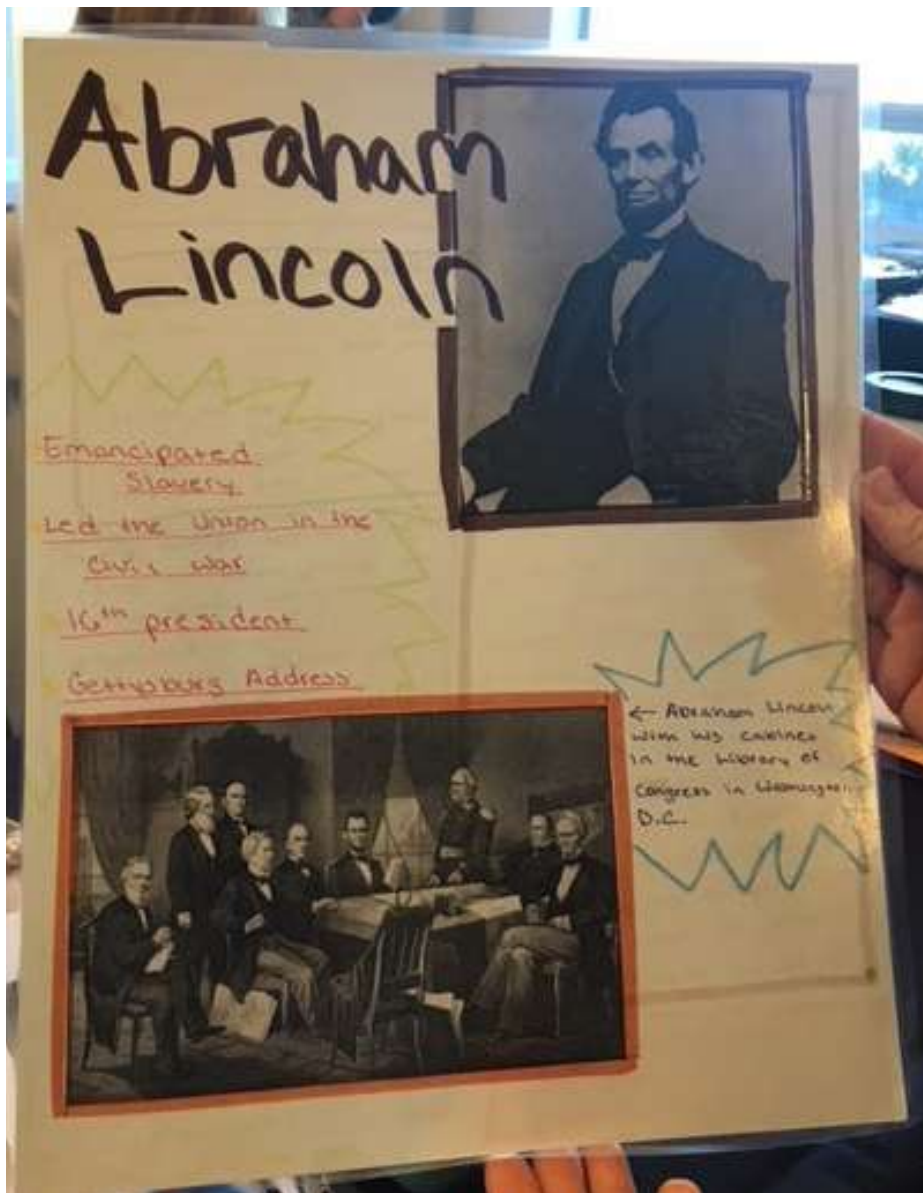 Abraham
Lincoln
Emancipated
Slavery
Led the Union in the
Civil War
16th president
Gettysburg Address
← Abraham Lincoln
with his cabinet
in the Library of
Congress in Washington
D.C.